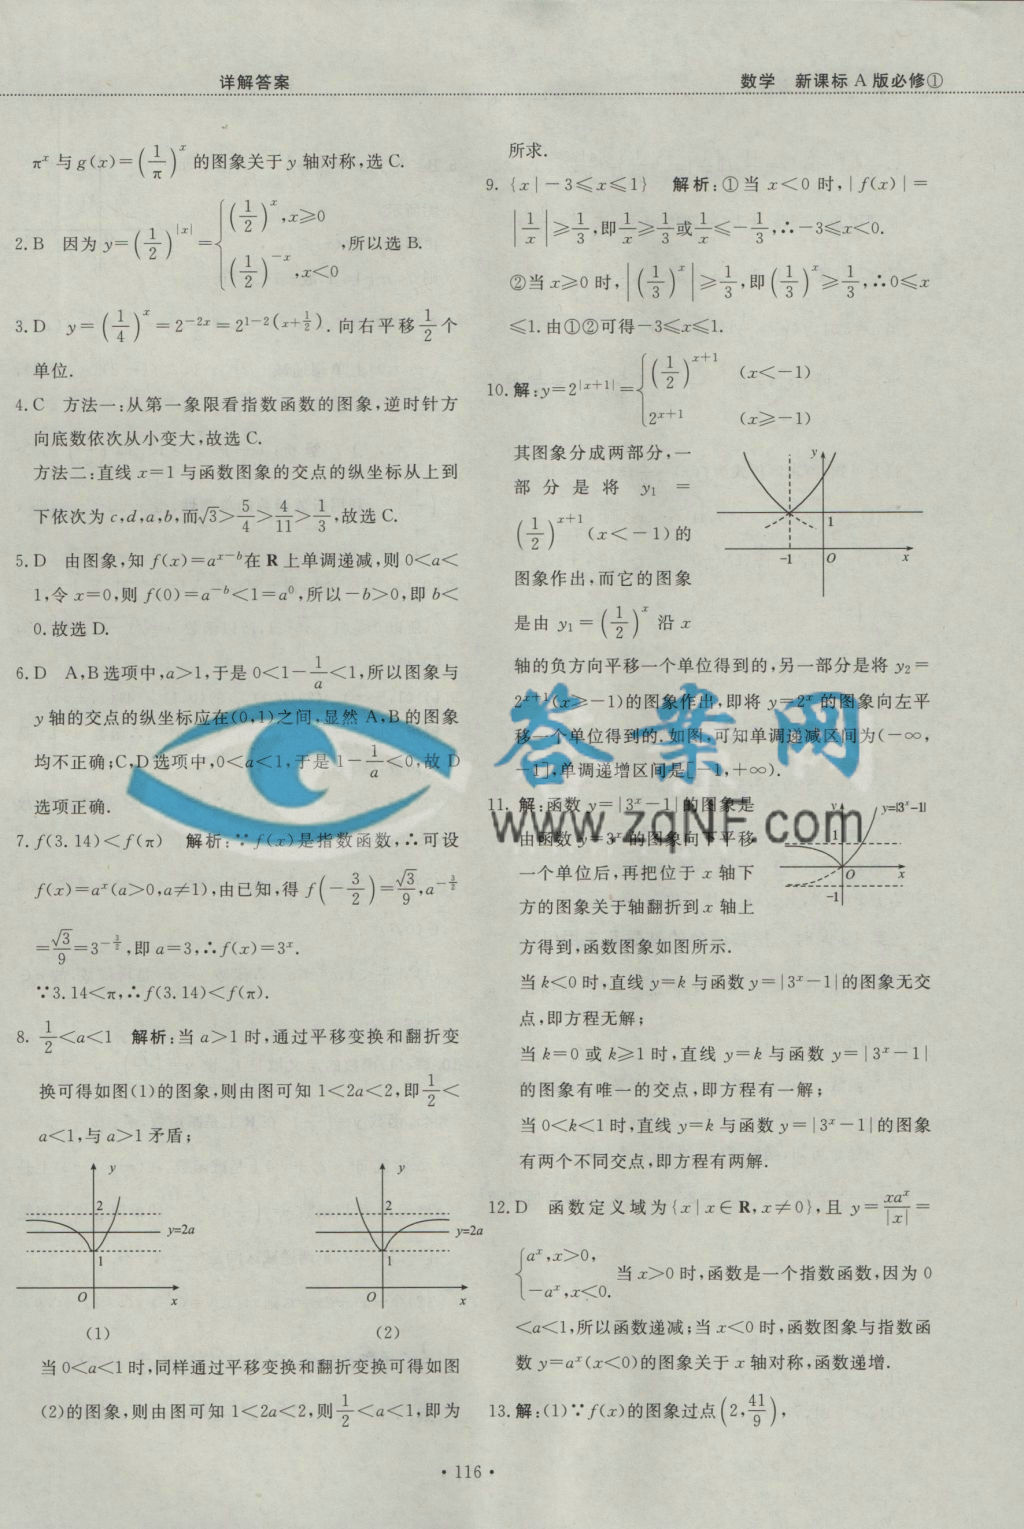 详解答案
数学 新课标 A 版必修①
πˣ 与 g(x)=(1/π)ˣ 的图象关于 y 轴对称,选 C.
2. B 因为 y=(1/2)^|x|={(1/2)ˣ,x≥0 (1/2)⁻ˣ,x<0 ,所以选 B.
3. D y=(1/4)ˣ=2^(-2x)=2^(1-2(x+1/2)). 向右平移 1/2 个
单位.
4. C 方法一:从第一象限看指数函数的图象,逆时针方
向底数依次从小变大,故选 C.
方法二:直线 x=1 与函数图象的交点的纵坐标从上到
下依次为 c,d,a,b,而√3>5/4>4/11>1/3,故选 C.
5. D 由图象,知 f(x)=a^(x-b)在 R 上单调递减,则 0<a<
1,令 x=0,则 f(0)=a^(-b)<1=a⁰,所以-b>0,即 b<
0.故选 D.
6. D A,B 选项中,a>1,于是 0<1-1/a<1,所以图象与
y 轴的交点的纵坐标应在(0,1)之间,显然 A,B 的图象
均不正确;C,D 选项中,0<a<1,于是 1-1/a<0,故 D
选项正确.
7. f(3.14)<f(π) 解析:∵f(x)是指数函数,∴可设
f(x)=aˣ(a>0,a≠1),由已知,得 f(-3/2)=√3/9,a^(-3/2)
=√3/9=3^(-3/2),即 a=3,∴f(x)=3ˣ.
∵3.14<π,∴f(3.14)<f(π).
8. 1/2<a<1 解析:当 a>1 时,通过平移变换和翻折变
换可得如图(1)的图象,则由图可知 1<2a<2,即1/2<
a<1,与 a>1 矛盾;
y 2 y=2a 1 O x
(1)
y 2 y=2a 1 O x
(2)
当 0<a<1 时,同样通过平移变换和翻折变换可得如图
(2)的图象,则由图可知 1<2a<2,则1/2<a<1,即为
所求.
9. {x|-3≤x≤1} 解析:①当 x<0 时,|f(x)|=
|1/x|≥1/3,即1/x≥1/3或1/x≤-1/3,∴-3≤x<0.
②当 x≥0 时,|(1/3)ˣ|≥1/3,即(1/3)ˣ≥1/3,∴0≤x
≤1.由①②可得-3≤x≤1.
10. 解:y=2^|x+1|={(1/2)^(x+1) (x<-1) 2^(x+1) (x≥-1)
其图象分成两部分,一
部分是将 y₁=
(1/2)^(x+1)(x<-1)的
图象作出,而它的图象
是由 y₁=(1/2)ˣ 沿 x
y 1 -1 O x
轴的负方向平移一个单位得到的,另一部分是将 y₂=
2^(x+1)(x≥-1)的图象作出,即将 y=2ˣ 的图象向左平
移一个单位得到的.如图,可知单调递减区间为(-∞,
-1],单调递增区间是[-1,+∞).
11. 解:函数 y=|3ˣ-1|的图象是
由函数 y=3ˣ 的图象向下平移
一个单位后,再把位于 x 轴下
方的图象关于轴翻折到 x 轴上
方得到,函数图象如图所示.
y y=|3ˣ-1| 1 O x -1
当 k<0 时,直线 y=k 与函数 y=|3ˣ-1|的图象无交
点,即方程无解;
当 k=0 或 k≥1 时,直线 y=k 与函数 y=|3ˣ-1|
的图象有唯一的交点,即方程有一解;
当 0<k<1 时,直线 y=k 与函数 y=|3ˣ-1|的图象
有两个不同交点,即方程有两解.
12. D 函数定义域为{x|x∈R,x≠0},且 y=xaˣ/|x|=
{aˣ,x>0, -aˣ,x<0. 当 x>0 时,函数是一个指数函数,因为 0
<a<1,所以函数递减;当 x<0 时,函数图象与指数函
数 y=aˣ(x<0)的图象关于 x 轴对称,函数递增.
13. 解:(1)∵f(x)的图象过点(2,41/9),
答案网
www.zqNF.com
· 116 ·